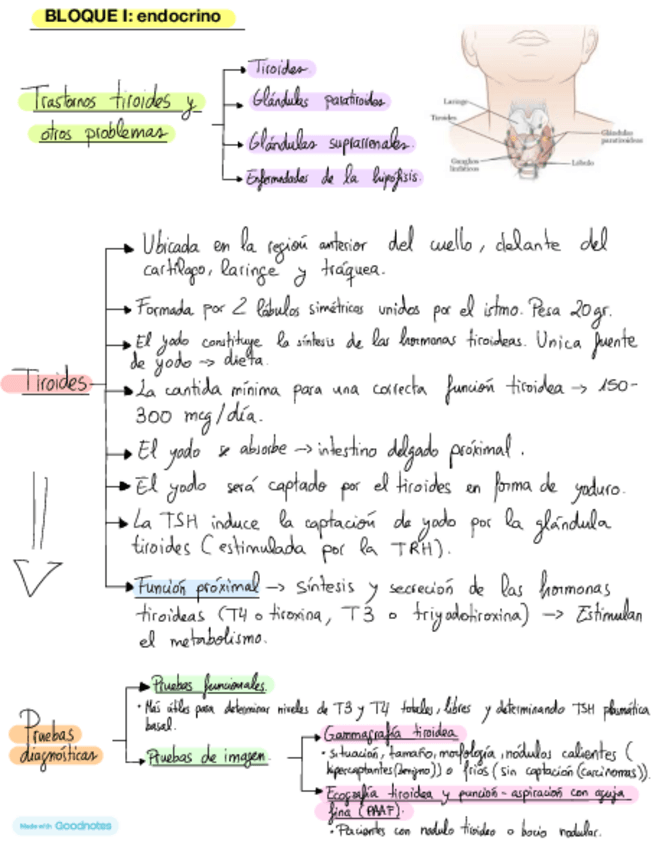 BLOQUE I: endocrino
Trastornos tiroides y
otros problemas
Tiroides.
Glándulas paratiroides
Glándulas suprarrenales.
Enfermedades de la hipófisis.
Laringe
Tiroides
Ganglios
linfáticos
Glándulas
paratiroideas
Lóbulo
Tiroides
Ubicada en la región anterior del cuello, delante del
cartílago, laringe y tráquea.
Formada por 2 lóbulos simétricos unidos por el istmo. Pesa 20 gr.
El yodo constituye la síntesis de las hormonas tiroideas. Unica fuente
de yodo → dieta.
La cantida mínima para una correcta función tiroidea → 150-
300 mcg/día.
El yodo se absorbe → intestino delgado próximal.
El yodo será captado por el tiroides en forma de yoduro.
La TSH induce la captación de yodo por la glándula
tiroides (estimulada por la TRH).
Función próximal → síntesis y secreción de las hormonas
tiroideas (T4 o tiroxina, T3 o triyodotiroxina) → Estimulan
el metabolismo.
Pruebas
diagnósticas
Pruebas funcionales.
• Más útiles para determinar niveles de T3 y T4 totales, libres y determinando TSH plasmática
basal.
Pruebas de imagen.
Gammagrafía tiroidea
• situación, tamaño, morfología, nódulos calientes (
hipercaptantes (benigno)) o fríos (sin captación (carcinomas)).
Ecografía tiroidea y punción-aspiración con aguja
fina (PAAF).
• Pacientes con nodulo tiroideo o bocio nodular.
Made with Goodnotes